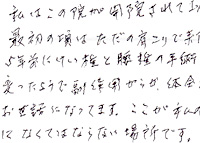 私はこの院が開院されて1
最初の頃はただの肩こりで来
5年前にけい椎と腰椎の手術
変ったようで副作用からか、体全
お世話になってます。ここが私の
になくてはならない場所です。